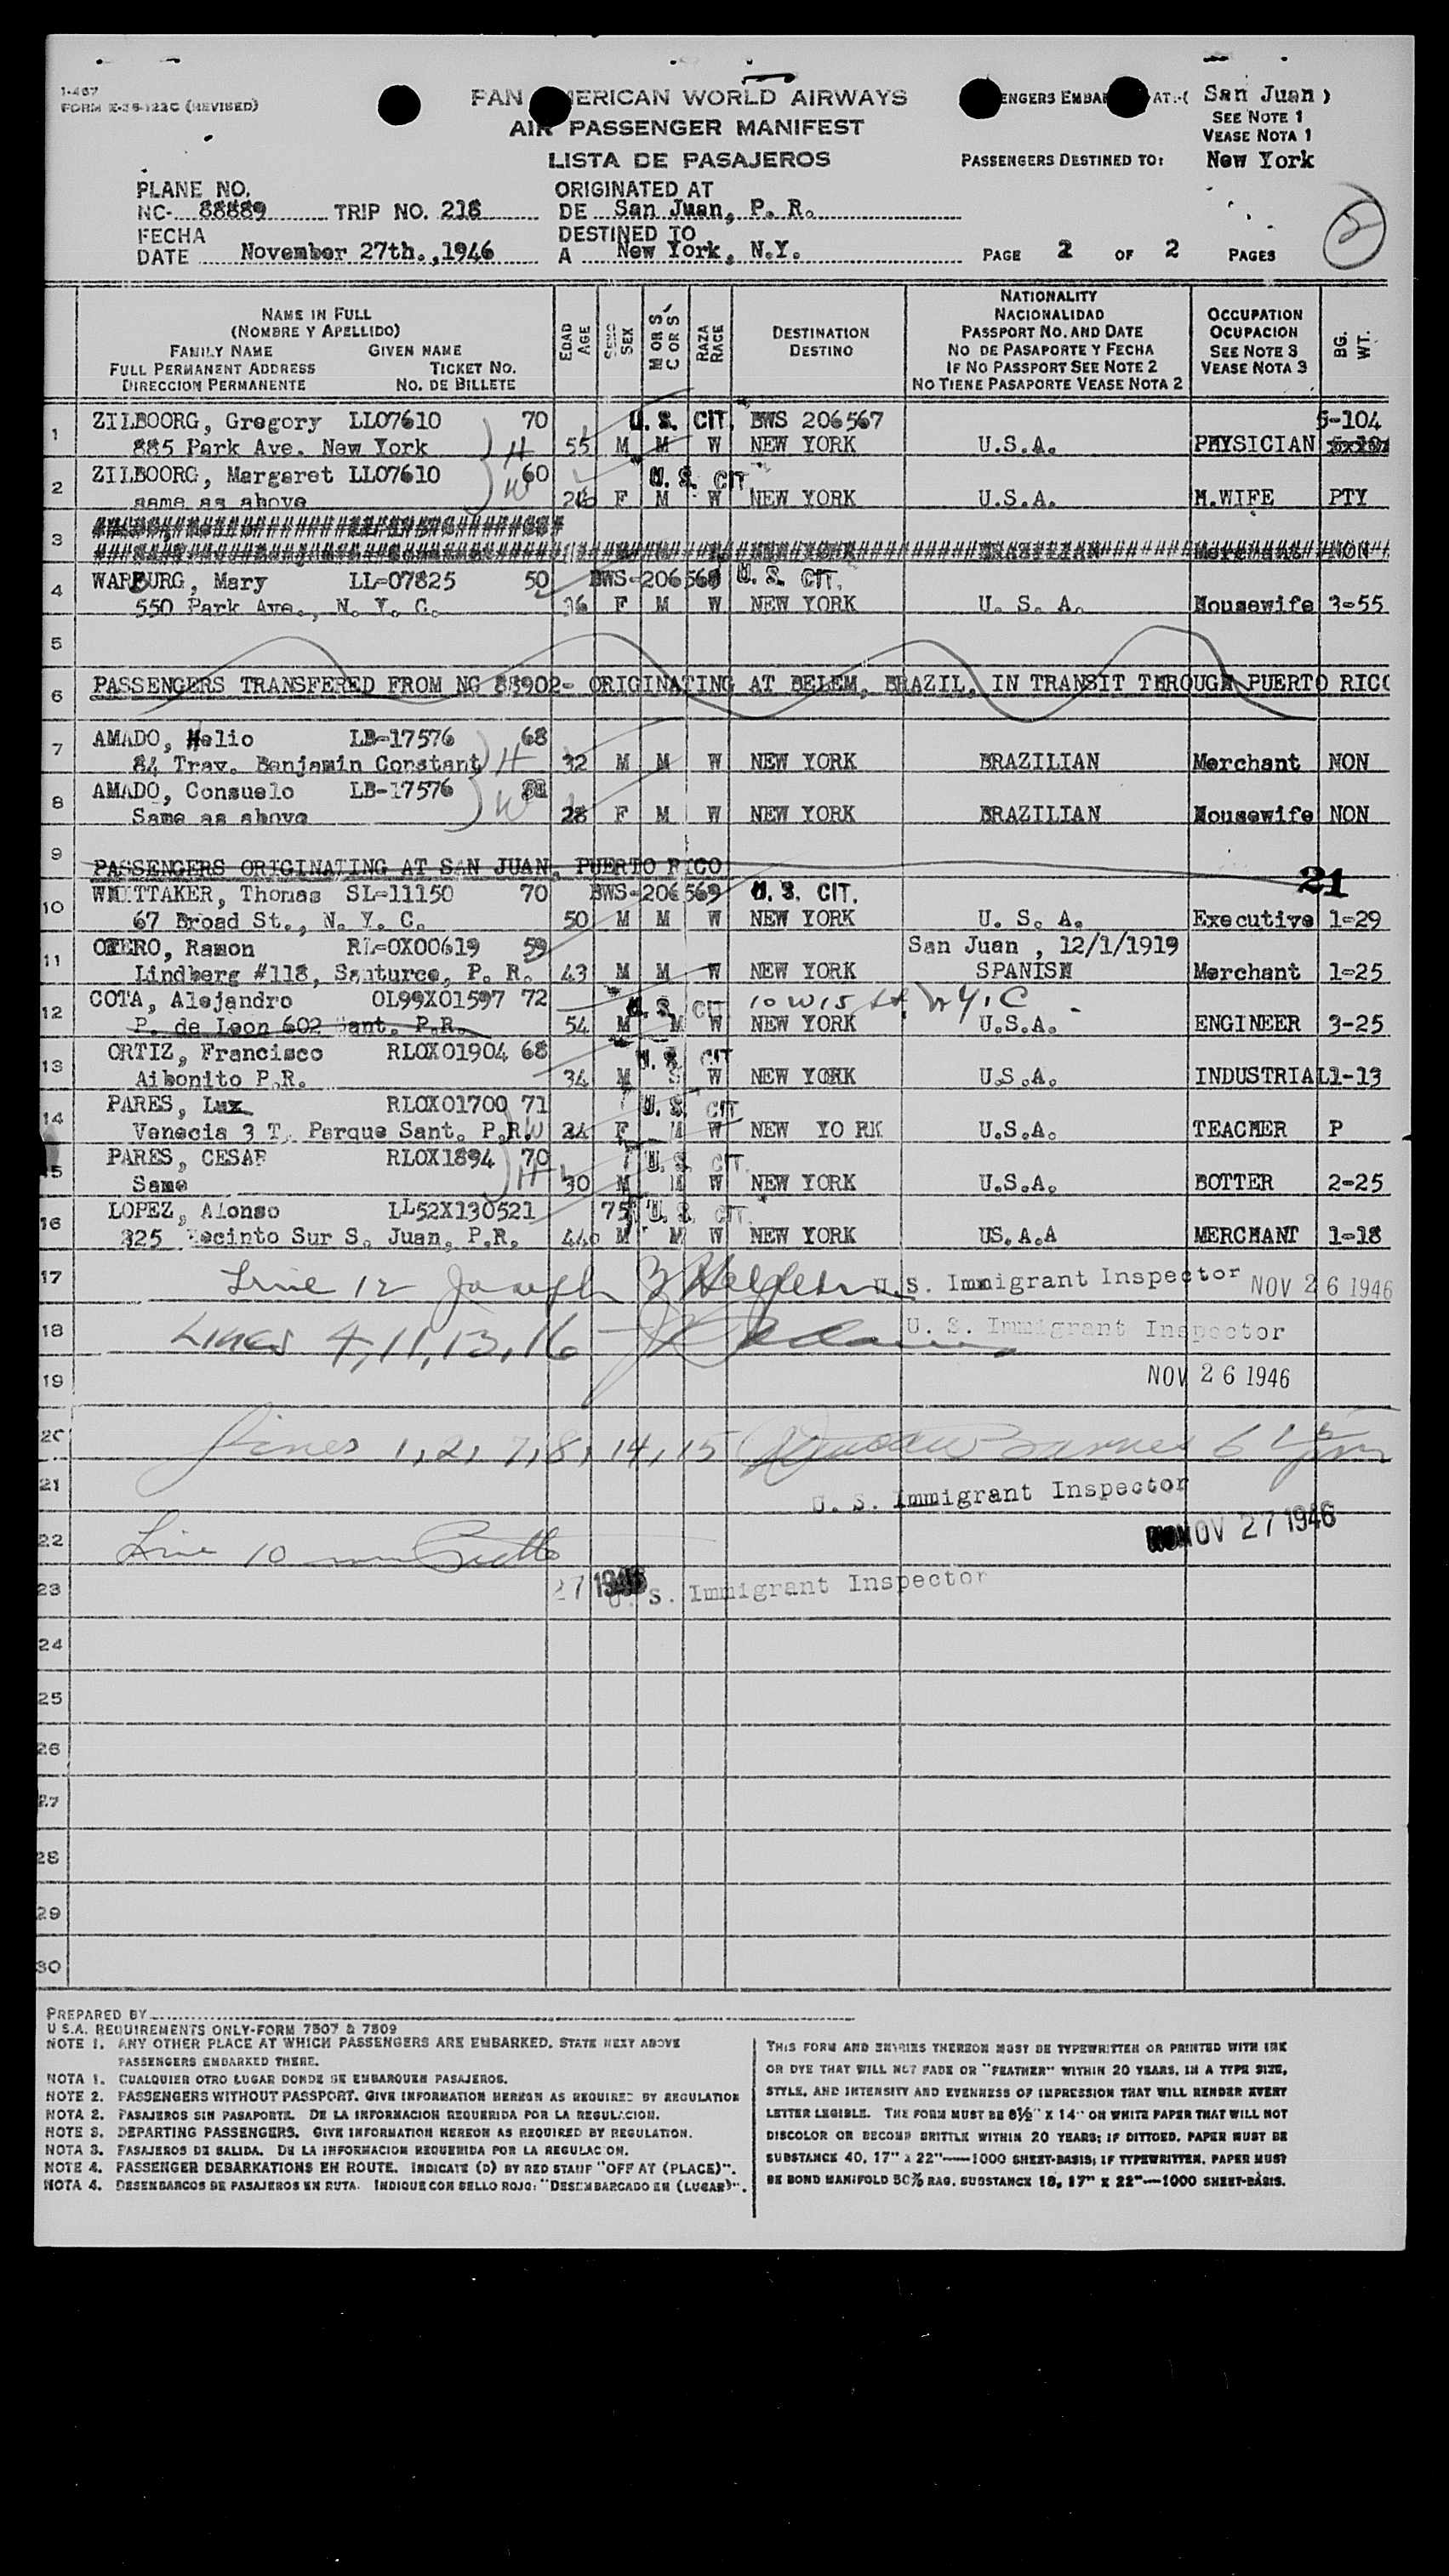 1-467
FORM E-36-122C (REVISED)
PAN AMERICAN WORLD AIRWAYS
AIR PASSENGER MANIFEST
LISTA DE PASAJEROS
AT:-( San Juan )
SEE NOTE 1
VEASE NOTA 1
PASSENGERS DESTINED TO: New York
PLANE NO.
NC- 88889 TRIP NO. 218
ORIGINATED AT
DE San Juan, P. R.
FECHA
DATE November 27th.,1946
DESTINED TO
A New York, N.Y.
PAGE 2 OF 2 PAGES
2
NAME IN FULL
(NOMBRE Y APELLIDO)
FAMILY NAME GIVEN NAME
FULL PERMANENT ADDRESS TICKET NO.
DIRECCION PERMANENTE NO. DE BILLETE
EDAD
AGE
SEXO
SEX
M OR S
C OR S
RAZA
RACE
DESTINATION
DESTINO
NATIONALITY
NACIONALIDAD
PASSPORT NO. AND DATE
NO DE PASAPORTE Y FECHA
IF NO PASSPORT SEE NOTE 2
NO TIENE PASAPORTE VEASE NOTA 2
OCCUPATION
OCUPACION
SEE NOTE 3
VEASE NOTA 3
BG.
WT.
1 ZILBOORG, Gregory LL07610 70 U. S. CIT. BWS 206567 5-104
885 Park Ave. New York H 55 M M W NEW YORK U.S.A. PHYSICIAN
2 ZILBOORG, Margaret LL07610 60 U. S. CIT.
same as above W 26 F M W NEW YORK U.S.A. H.WIFE PTY
3 Merchant NON
4 WARBURG, Mary LL-07825 50 BWS-206568 U. S. CIT.
550 Park Ave., N. Y. C. 36 F M W NEW YORK U. S. A. Housewife 3-55
5
6 PASSENGERS TRANSFERED FROM NC 88902- ORIGINATING AT BELEM, BRAZIL, IN TRANSIT THROUGH PUERTO RICO
7 AMADO, Helio LB-17576 68
84 Trav. Benjamin Constant H 32 M M W NEW YORK BRAZILIAN Merchant NON
8 AMADO, Consuelo LB-17576
Same as above W 28 F M W NEW YORK BRAZILIAN Housewife NON
9 PASSENGERS ORIGINATING AT SAN JUAN, PUERTO RICO
21
10 WHITTAKER, Thomas SL-11150 70 BWS-206569 U. S. CIT.
67 Broad St., N. Y. C. 50 M M W NEW YORK U. S. A. Executive 1-29
11 OTERO, Ramon RL-OX00619 59 San Juan , 12/1/1919
Lindberg #118, Santurce, P. R. 43 M M W NEW YORK SPANISH Merchant 1-25
12 COTA, Alejandro OL99X01597 72 U. S. CIT 10 W 15 St. N.Y.C
P. de Leon 602 Sant. P.R. 54 M M W NEW YORK U.S.A. ENGINEER 3-25
13 ORTIZ, Francisco RLOX01904 68 U. S. CIT
Aibonito P.R. 34 M S W NEW YORK U.S.A. INDUSTRIAL 1-13
14 PARES, Luz RLOX01700 71 U. S. CIT
Venecia 3 T. Parque Sant. P.R. W 24 F M W NEW YO RK U.S.A. TEACHER P
15 PARES, CESAR RLOX1894 70 U. S. CIT.
Same H 30 M M W NEW YORK U.S.A. BOTTER 2-25
16 LOPEZ, Alonso LL52X130521 75 U. S. CIT.
325 Jecinto Sur S. Juan, P.R. 44 M M W NEW YORK US.A.A MERCHANT 1-18
17 Line 12 Joseph U.S. Immigrant Inspector NOV 26 1946
18 Lines 4,11,13,16 U. S. Immigrant Inspector
19 NOV 26 1946
20 Lines 1,2,7,8,14,15 Barnes
21 U. S. Immigrant Inspector
22 Line 10 NOV 27 1946
23 27 1946 U. S. Immigrant Inspector
24
25
26
27
28
29
30
PREPARED BY
U.S.A. REQUIREMENTS ONLY-FORM 7507 & 7509
NOTE 1. ANY OTHER PLACE AT WHICH PASSENGERS ARE EMBARKED, STATE NEXT ABOVE
PASSENGERS EMBARKED THERE.
NOTA 1. CUALQUIER OTRO LUGAR DONDE SE EMBARQUEN PASAJEROS.
NOTE 2. PASSENGERS WITHOUT PASSPORT. GIVE INFORMATION HEREON AS REQUIRED BY REGULATION
NOTA 2. PASAJEROS SIN PASAPORTE. DE LA INFORMACION REQUERIDA POR LA REGULACION.
NOTE 3. DEPARTING PASSENGERS. GIVE INFORMATION HEREON AS REQUIRED BY REGULATION.
NOTA 3. PASAJEROS DE SALIDA. DE LA INFORMACION REQUERIDA POR LA REGULACION.
NOTE 4. PASSENGER DEBARKATIONS EN ROUTE. INDICATE (D) BY RED STAMP "OFF AT (PLACE)".
NOTA 4. DESEMBARCOS DE PASAJEROS EN RUTA. INDIQUE CON SELLO ROJO: "DESEMBARCADO EN (LUGAR)".
THIS FORM AND ENTRIES THEREON MUST BE TYPEWRITTEN OR PRINTED WITH INK
OR DYE THAT WILL NOT FADE OR "FEATHER" WITHIN 20 YEARS, IN A TYPE SIZE,
STYLE, AND INTENSITY AND EVENNESS OF IMPRESSION THAT WILL RENDER EVERY
LETTER LEGIBLE. THE FORM MUST BE 8½" X 14" ON WHITE PAPER THAT WILL NOT
DISCOLOR OR BECOME BRITTLE WITHIN 20 YEARS; IF DITTOED, PAPER MUST BE
SUBSTANCE 40, 17" X 22"—1000 SHEET-BASIS; IF TYPEWRITTEN, PAPER MUST
BE BOND MANIFOLD 50% RAG, SUBSTANCE 18, 17" X 22"—1000 SHEET-BASIS.